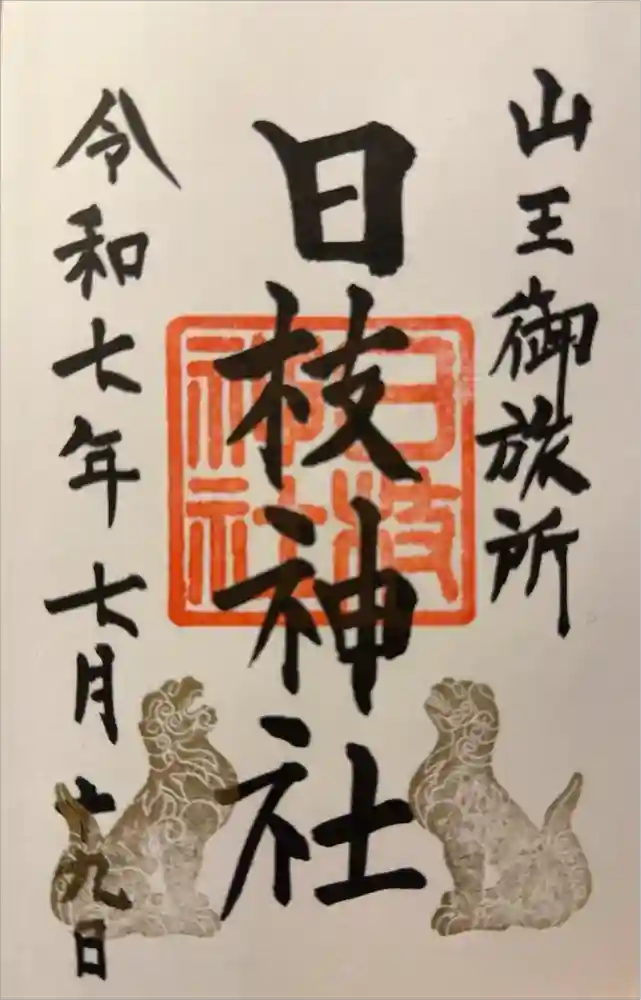 山王御旅所
日枝神社
日枝神社
令和七年七月十九日